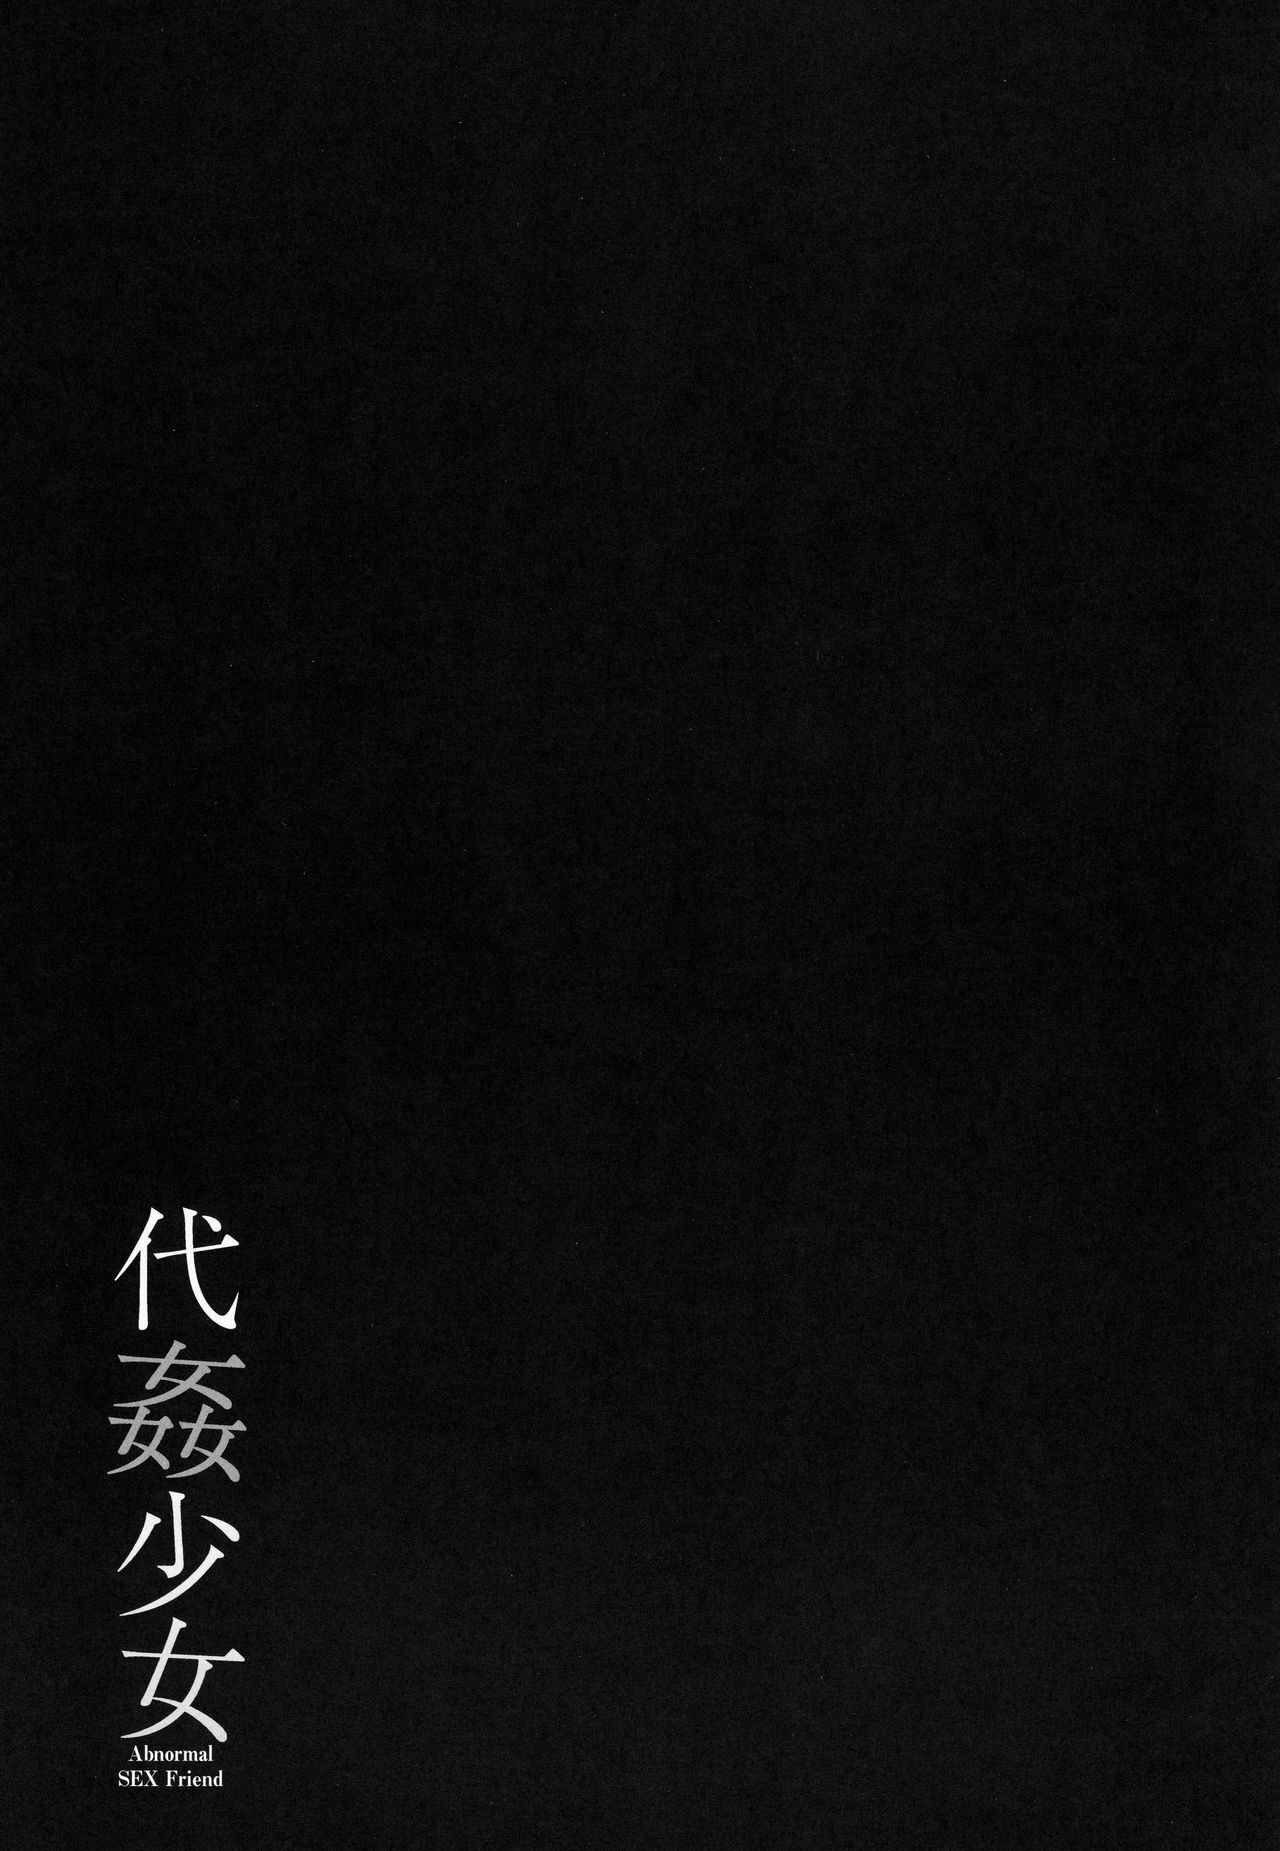 代姦少女
Abnormal
SEX Friend